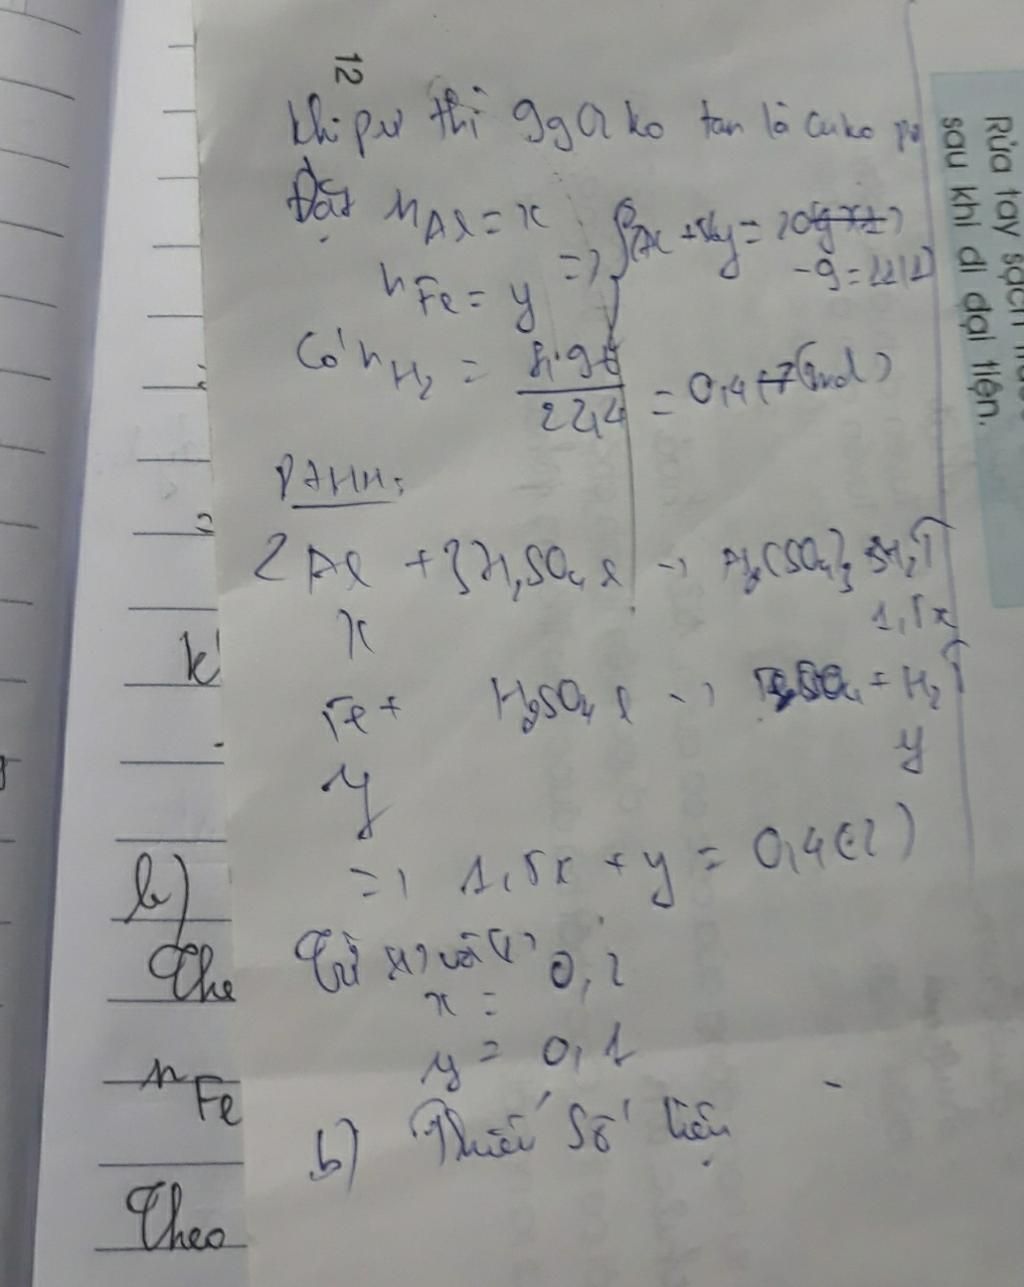 12
Khi pư thì 9g Q ko tan là Cu ko pư
Đặt nAl = x
nFe = y
=>
-9 = 11 (1)
Có nH2 = 8,96/22,4 = 0,4 (mol)
PTHH:
2Al + 3H2SO4 l -> Al2(SO4)3 3H2↑
x 1,5x
Fe + H2SO4 l -> FeSO4 + H2↑
y y
=> 1,5x + y = 0,4 (2)
Từ (1) và (2)
x = 0,2
y = 0,1
b) Thiếu số liệu
k
b)
The
nFe
Theo
Rửa tay sạch
sau khi đi đại tiện.